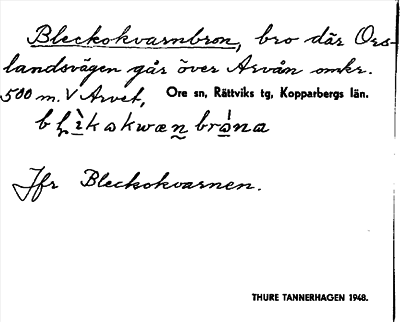 Bleckokvarnbron, bro där Ore-
landsvägen går över Arvån omkr.
500 m. V Arvet, Ore sn, Rättviks tg, Kopparbergs län.
Jfr Bleckokvarnen.
THURE TANNERHAGEN 1948.